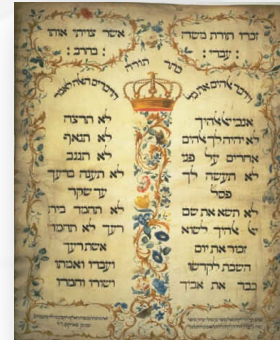 זכרו תורת משה
: עבדי :
אשר צויתי אותו
: בחרב :
כתר תורה
הדברים האלה לאמר
אלהיך
לא יהיה לך אלהים
אחרים על פני
לא תעשה לך
פסל
לא תשא את שם
אלהיך לשוא
זכור את יום
השבת לקדשו
כבד את אביך
לא תרצח
לא תנאף
לא תגנב
לא תענה ברעך
עד שקר
לא תחמד בית
רעך לא תחמד
אשת רעך
ועבדו ואמתו
ושורו וחמרו